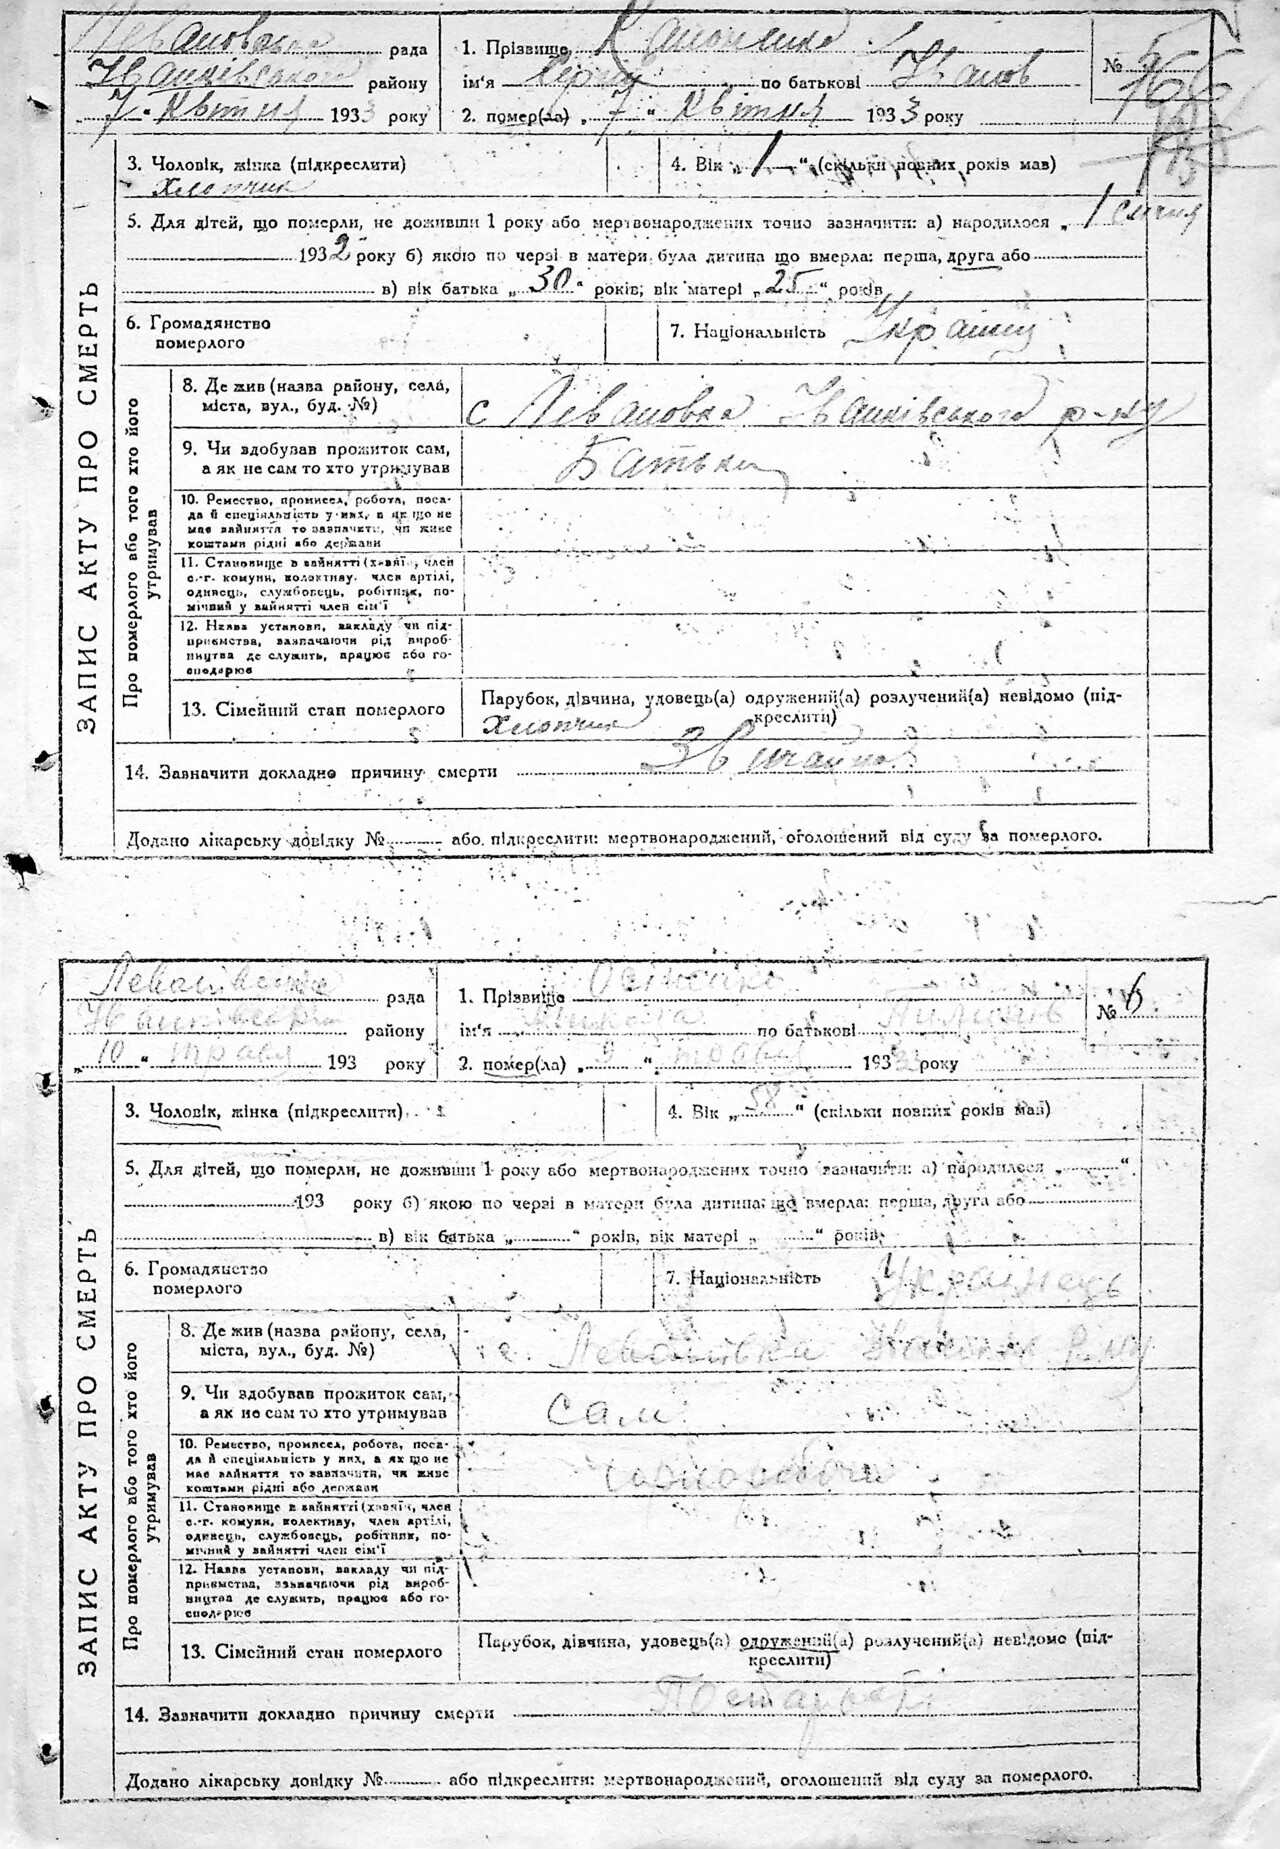 Левановська рада
Іванківського району
"7" Квітня 1933 року
1. Прізвище
ім'я Сергій по батькові Іванов
2. помер(ла) "7" Квітня 1933 року
№ 5
ЗАПИС АКТУ ПРО СМЕРТЬ
3. Чоловік, жінка (підкреслити)
Хлопчик
4. Вік "1" (скільки повних років мав)
5. Для дітей, що померли, не доживши 1 року або мертвонароджених точно зазначити: а) народилося "1 січня
1932 року б) якою по черзі в матери була дитина що вмерла: перша, друга або
в) вік батька "30" років; вік матері "25" років
6. Громадянство
померлого
7. Національність Украінец
Про померлого або того хто його
утримував
8. Де жив (назва району, села,
міста, вул., буд. №)
с Левановка Іванківського р-ну
9. Чи здобував прожиток сам,
а як не сам то хто утримував
Батьки
10. Ремество, промисел, робота, поса-
да й спеціяльність у них, а як що не
має зайняття то зазначити, чи живе
коштами рідні або держави
11. Становище в зайнятті (хазяїн, член
с.-г. комуни, колективу, член артілі,
одинець, службовець, робітник, по-
мічний у зайнятті член сім'ї
12. Назва установи, закладу чи під-
приємства, зазначаючи рід вироб-
ництва де служить, працює або го-
сподарює
13. Сімейний стан померлого
Парубок, дівчина, удовець(а) одружений(а) розлучений(а) невідомо (під-
креслити)
Хлопчик
14. Зазначити докладно причину смерти Звичайно
Додано лікарську довідку № або підкреслити: мертвонароджений, оголошений від суду за померлого.
Леванівська рада
Іванківського району
"10" травня 193 року
1. Прізвище
ім'я Микола по батькові Пилипів
2. помер(ла) "9" травня 1933 року
№ 6.
ЗАПИС АКТУ ПРО СМЕРТЬ
3. Чоловік, жінка (підкреслити)
4. Вік "58" (скільки повних років мав)
5. Для дітей, що померли, не доживши 1 року або мертвонароджених точно зазначити: а) народилося " "
193 року б) якою по черзі в матери була дитина що вмерла: перша, друга або
в) вік батька " " років, вік матері " " років
6. Громадянство
померлого
7. Національність Українець
Про померлого або того хто його
утримував
8. Де жив (назва району, села,
міста, вул., буд. №)
с. Леванівка Іванков Р-ну
9. Чи здобував прожиток сам,
а як не сам то хто утримував
Сам
10. Ремество, промисел, робота, поса-
да й спеціяльність у них, а як що не
має зайняття то зазначити, чи живе
коштами рідні або держави
11. Становище в зайнятті (хазяїн, член
с.-г. комуни, колективу, член артілі,
одинець, службовець, робітник, по-
мічний у зайнятті член сім'ї
12. Назва установи, закладу чи під-
приємства, зазначаючи рід вироб-
ництва де служить, працює або го-
сподарює
13. Сімейний стан померлого
Парубок, дівчина, удовець(а) одружений(а) розлучений(а) невідомо (під-
креслити)
14. Зазначити докладно причину смерти По старості
Додано лікарську довідку № або підкреслити: мертвонароджений, оголошений від суду за померлого.